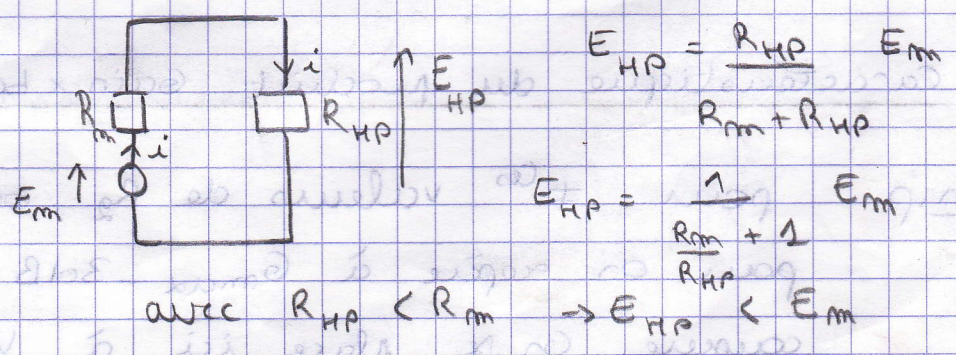 R_m
i
E_m
i
R_HP
E_HP
E_HP = R_HP / (R_m + R_HP) E_m
E_HP = 1 / (R_m/R_HP + 1) E_m
avec R_HP < R_m → E_HP < E_m